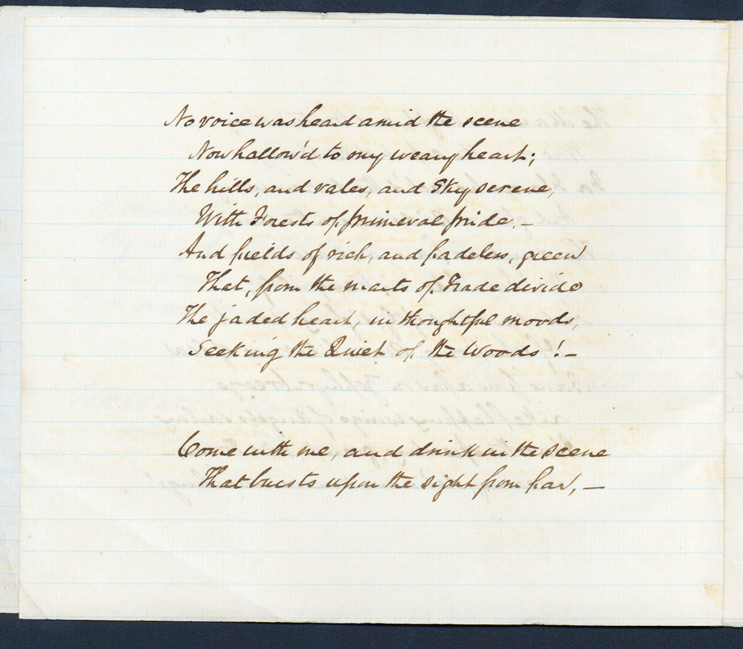 No voice was heard amid the scene
Now hallow'd to my weary heart;
The hills, and vales, and Sky serene,
With Forests of primeval pride. —
And fields of rich, and fadeless, green
That, from the marts of Trade divide
The jaded heart, in thoughtful moods,
Seeking the Quiet of the Woods! —
Come with me, and drink in the scene
That bursts upon the sight from far, —